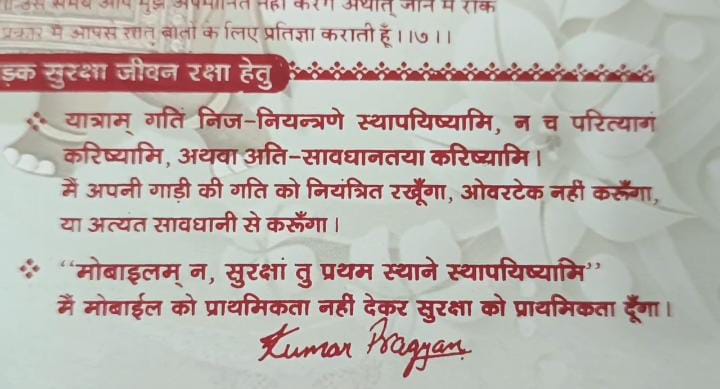 समय आप मुझे अपमानित नहीं करेंगे अर्थात् जान में राक
प्रकार में आपसे सात् बातों के लिए प्रतिज्ञा कराती हूँ।।७।।
ड़क सुरक्षा जीवन रक्षा हेतु
यात्राम् गतिं निज-नियन्त्रणे स्थापयिष्यामि, न च परित्यागं
करिष्यामि, अथवा अति-सावधानतया करिष्यामि।
मैं अपनी गाड़ी की गति को नियंत्रित रखूँगा, ओवरटेक नहीं करूँगा,
या अत्यंत सावधानी से करूँगा।
“मोबाइलम् न, सुरक्षां तु प्रथम स्थाने स्थापयिष्यामि”
मैं मोबाईल को प्राथमिकता नहीं देकर सुरक्षा को प्राथमिकता दूँगा।
Kumar Pragyan